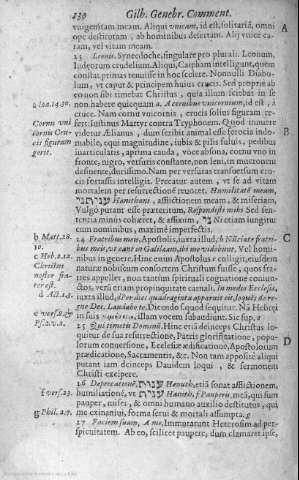 230 Gilh. Genebr. Comment.
vnigenitam meam. Aliqui vnicam, id est, solitariã, omni
ope destitutam, ab hominibus desertam. Alij vnicè ca-
ram, vel vitam meam.
22 Leonis. Synecdoche, singulare pro plurali. Leonum,
Iudæorum crudelium. Aliqui, Caipham intelligunt, quẽm
constat primas tenuisse in hoc scelere. Nonnulli Diabo-
lum, vt caput & principem huius crucis. Sed propriè ab
eo non sibi timebat Christus, quia illum scribat in se
non habere quicquam a A cornibus vnicornium, id est, à
cruce. Nam cornu vnicornis, crucis solius figuram re-
fert: Iustinus Martyr contra Tryphonem. Quod innuere
videtur Ælianus, dum scribit animal esse ferocia indo-
mabile, equi magnitudine, iubis & pilis fuluis, pedibus
inarticulatis, aprina cauda, voce absona, cornu vno in
fronte, nigro, versutis constante, non leni, in mucronem
desinente, durissimo. Nam per versuras transuersum cru-
cis fortassis intelligit. Precatur autem, vt se ad vitam
mortalem per resurrectionẽ reuocet. Humilitatẽ meam,
Hanithani, afflictionem meam, & miseriam,
Vulgò putant esse præteritum, Respondisti mihi Sed sen-
tentia minùs cohæret, & affixum, ני Ni etiam iungitur
cum nominibus, maximè imperfectis.
24 Fratribus meis, Apostolis, iuxta illud, b Nũciate fratri-
bus meis, vt eant in Galilæam, ibi me videbunt. Vel homi-
nibus in genere. Hinc enim Apostolus c colligit, eiusdem
naturæ nobiscum consortem Christum fuisse, quos fra-
tres appellet, non tantùm spirituali cognatione coniun-
ctos, verũ etiam propinquitate carnali. In medio Ecclesiæ,
iuxta illud, d Per dies quadraginta apparuit eis, loquẽs de re-
gno Dei. Laudabo te. Dicendo sequẽ sequitur. Nã Hebrei
in suis illum vocem subaudiunt. Sic Psa. 2.
25 Qui timetis Dominũ. Hinc etiã deinceps Christus lo-
quitur de sua resurrectione, Patris glorificatione, popu-
lorum conuersione, Ecclesiæ ædificatione, Apostolorum
prædicatione, Sacramentis, &c. Non tam appositè aliqui
putant iam deinceps Dauidem loqui, & sermonem
Christi excipere.
26 Deprecationẽ, ענות Hanuth, etiã sonat afflictionem,
humilitatem, vt ענות Hanuth, f Pauperis mei, qui sum
pauper, miser, & omni humano auxilio destitutus, qui
me exinaniui, forma serui & mortali assumpta. g
27 Faciem suam, A me. Immutarunt Heterosim ad per-
spicuitatem. Ab eo, scilicet paupere, dum clamaret ipse,
a Ioa. 14. 30.
Cornu vni
cornis Cru-
cis figuram
gerit.
b Matt. 28.
10.
c Heb. 2. 12
Christus
noster fra-
ter est.
d Act. 1. 3.
f vers. 23.
g Phil. 2. 7.
A
B
C
D